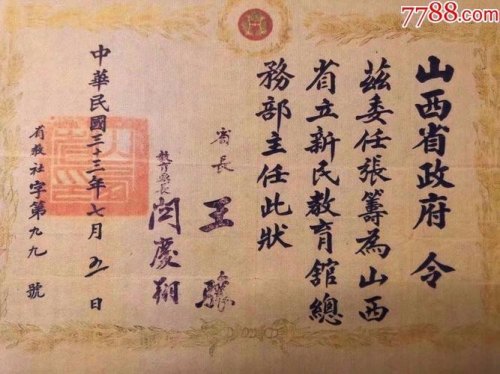 7788.com
山西省政府 令
茲委任張籌為山西
省立新民教育館總
務部主任此狀
省長 王驤
教育廳長 閆慶翔
中華民國三十三年七月五日
省教社字第九九號